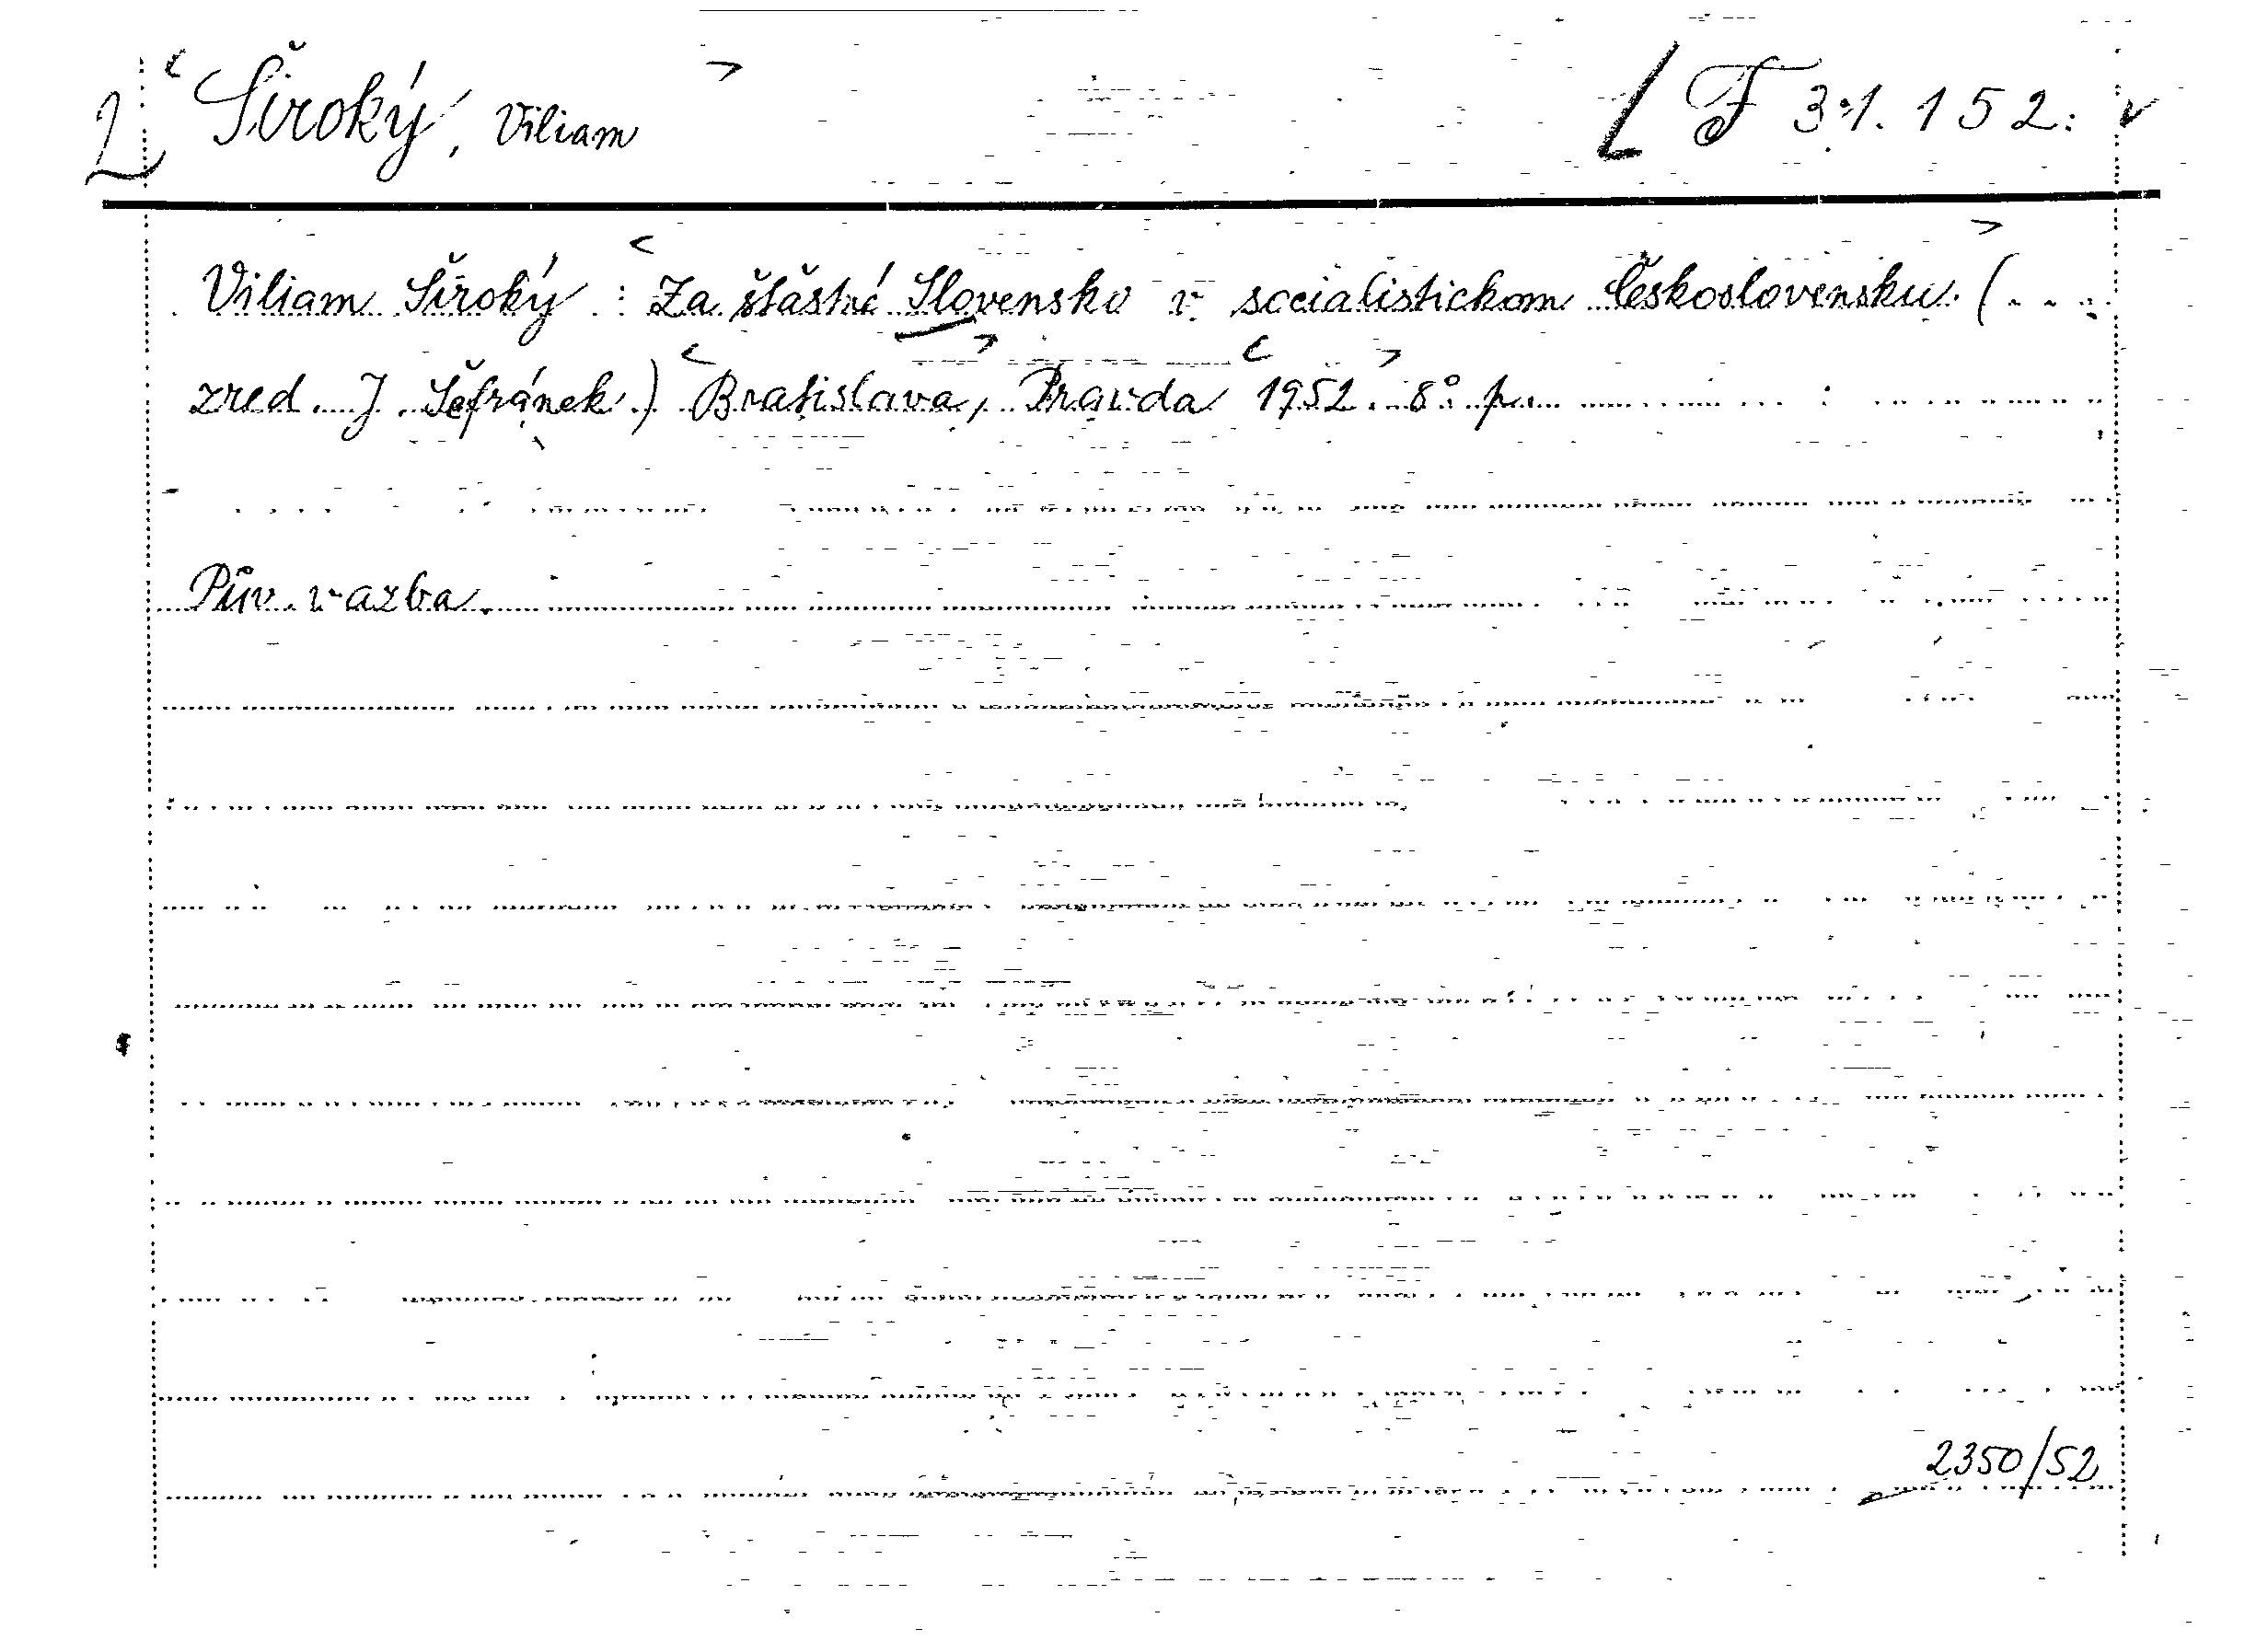 Široký, Viliam F 31.152.
Viliam Široký : Za šťastné Slovensko v socialistickom Československu. (...
zred. J. Šefránek.) Bratislava, Pravda 1952. 8° p.
Pův. vazba.
2350/52